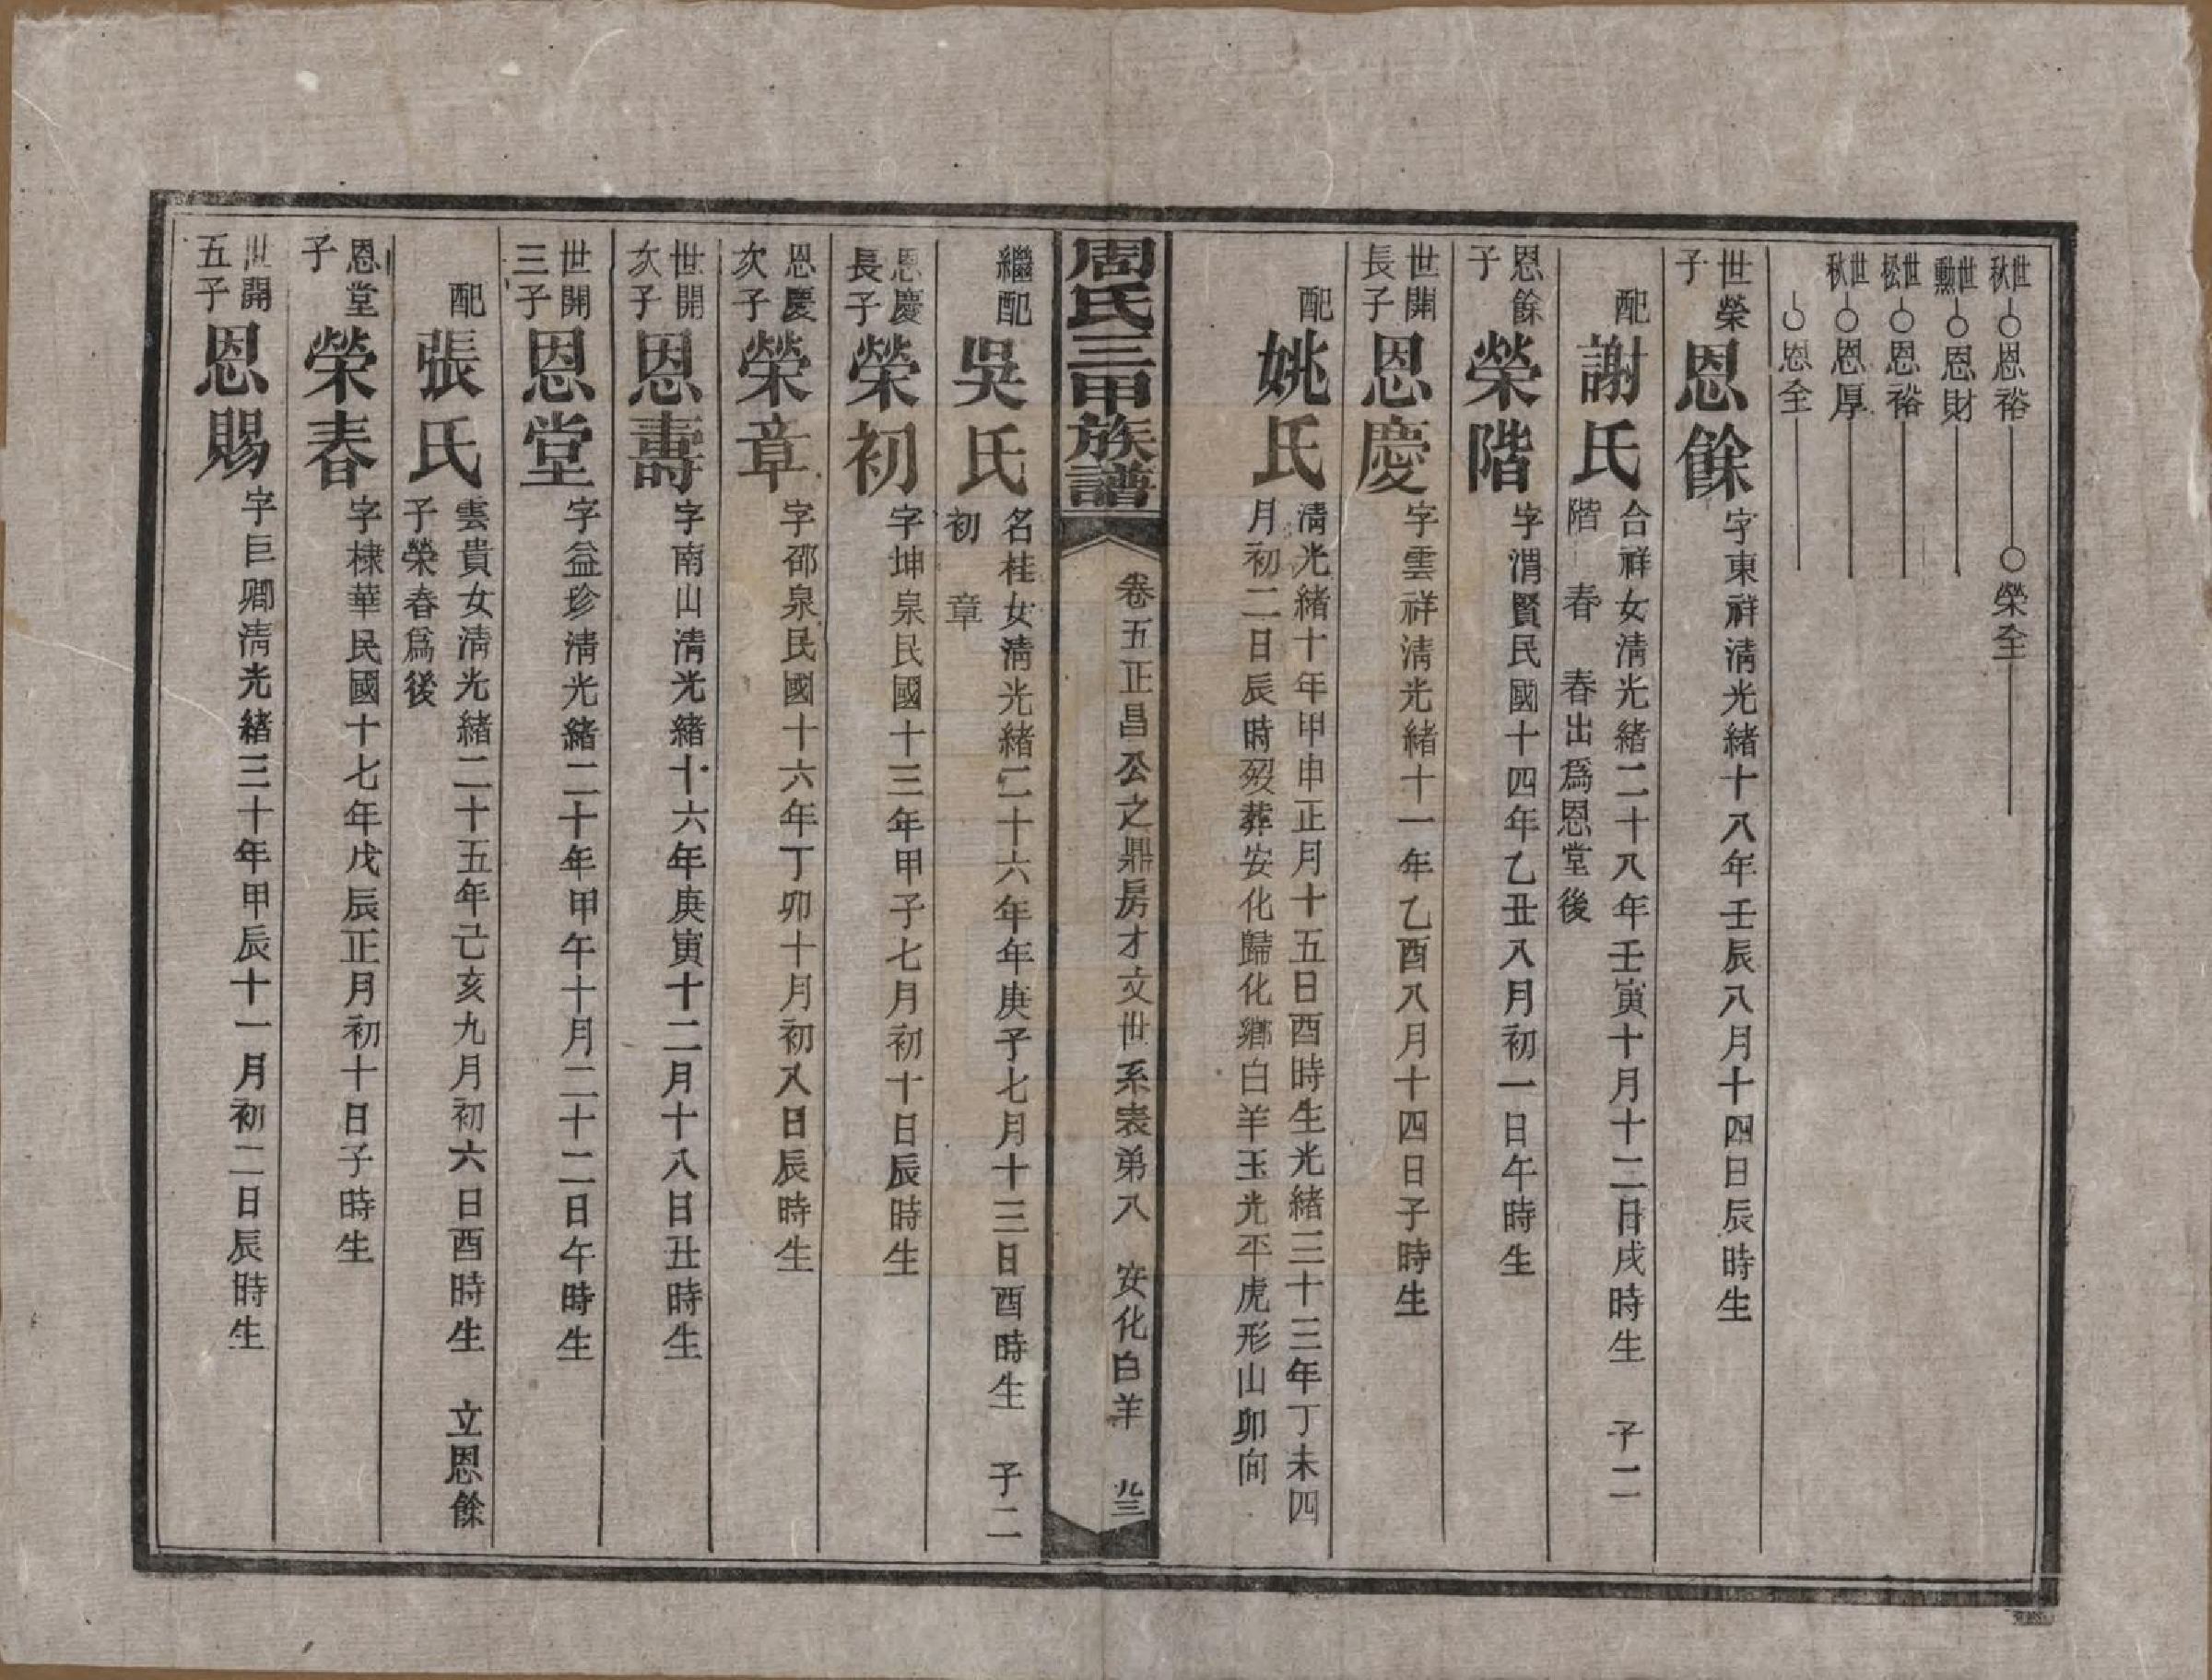 世秋○恩裕 ○榮全
世勳○恩財
世松○恩裕
世秋○恩厚
○恩全
世榮子 恩餘 字東祥清光緒十八年壬辰八月十四日辰時生
配 謝氏 合祥女清光緒二十八年壬寅十月十二日戌時生 子二
階 春 春出爲恩堂後
恩餘子 榮階 字渭賢民國十四年乙丑八月初一日午時生
世開長子 恩慶 字雲祥清光緒十一年乙酉八月十四日子時生
配 姚氏 清光緒十年甲申正月十五日酉時生光緒三十三年丁未四
月初二日辰時歿葬安化歸化鄉白羊玉光平虎形山卯向
周氏三甲族譜 卷五正昌公之鼎房才文世系表弟八 安化白羊 九三
繼配 吳氏 名桂女清光緒二十六年年庚子七月十三日酉時生 子二
初 章
恩慶長子 榮初 字坤泉民國十三年甲子七月初十日辰時生
恩慶次子 榮章 字邵泉民國十六年丁卯十月初八日辰時生
世開次子 恩壽 字南山清光緒十六年庚寅十二月十八日丑時生
世開三子 恩堂 字益珍清光緒二十年甲午十月二十二日午時生
配 張氏 雲貴女清光緒二十五年己亥九月初六日酉時生 立恩餘
子榮春爲後
恩堂子 榮春 字棣華民國十七年戊辰正月初十日子時生
世開五子 恩賜 字巨卿清光緒三十年甲辰十一月初二日辰時生